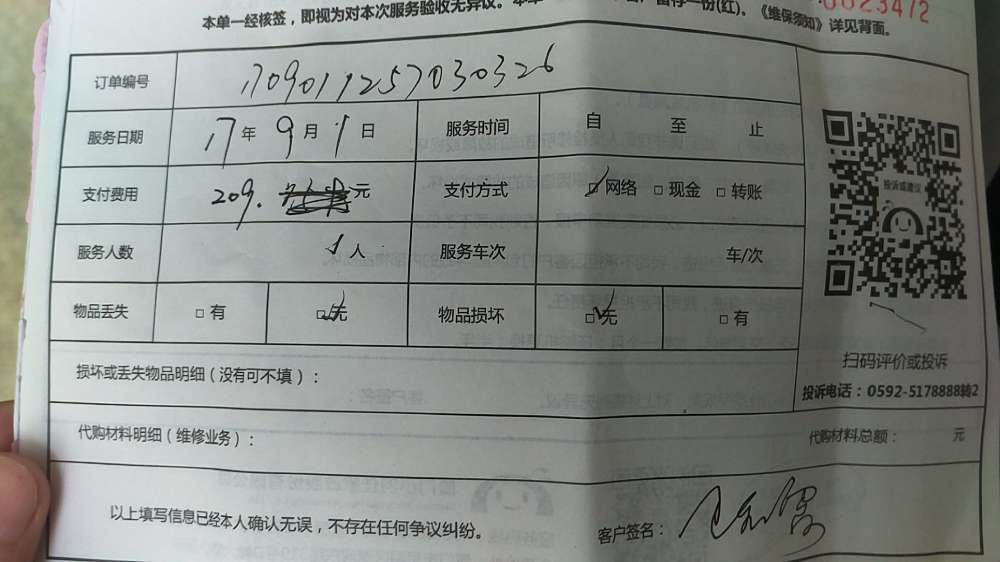 本单一经核签，即视为对本次服务验收无异议。
留存一份(红)，《维保须知》详见背面。
0023472
订单编号 1709011257030326
服务日期 17年9月1日 服务时间 自 至 止
支付费用 209. 元 支付方式 ☑网络 □现金 □转账
服务人数 1人 服务车次 车/次
物品丢失 □有 ☑无 物品损坏 ☑无 □有
投诉或建议
扫码评价或投诉
投诉电话：0592-5178888转2
损坏或丢失物品明细（没有可不填）：
代购材料明细（维修业务）： 代购材料总额： 元
以上填写信息已经本人确认无误，不存在任何争议纠纷。 客户签名：